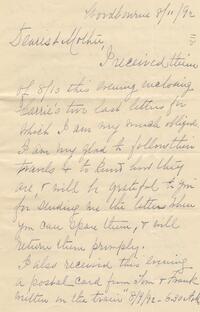 Woodbourne 8/11/92
Dearest Mother,
I received
of 8/10 this evening enclosing
Carrie's two last letters for
which I am very much obliged.
I am very glad to follow their
travels & to know how they
are & will be grateful to you
for sending me the letters when
you can spare them, & will
return them promptly.
I also received this evening
a postal card from Tom & Frank
written on the train 8/9/92 - 6.30